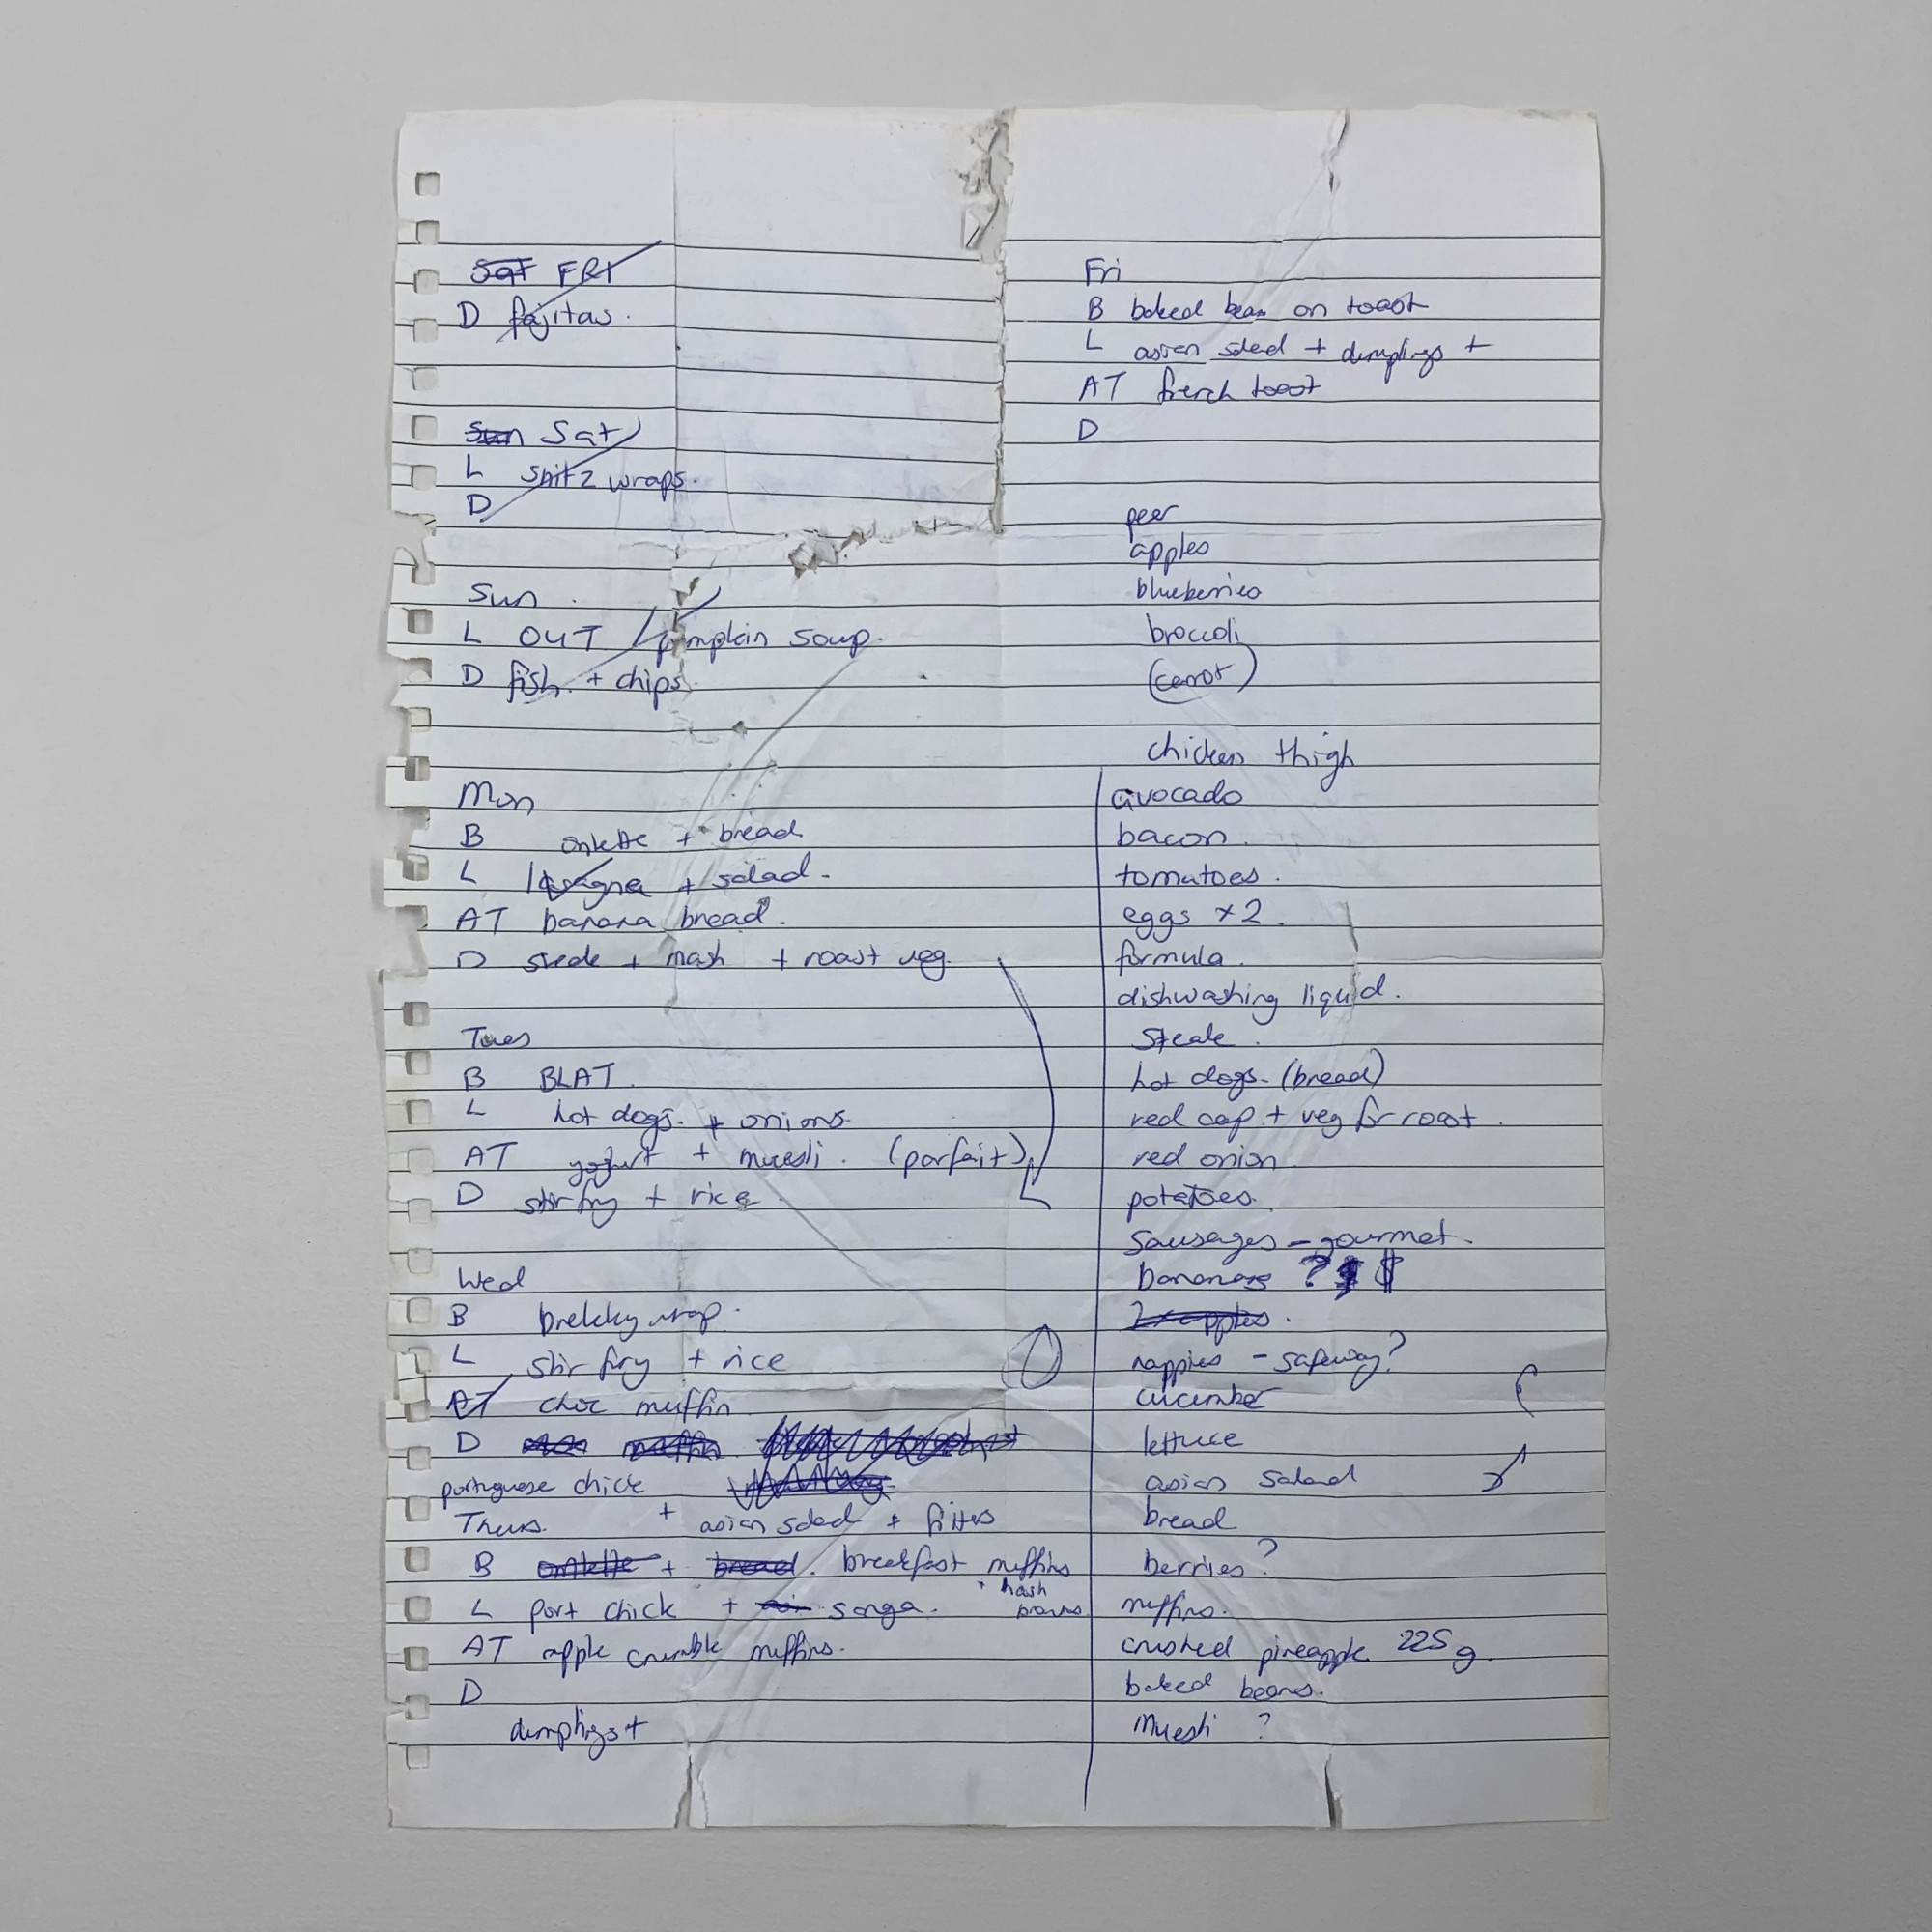 Sat FRI
D fajitas.
Sun Sat
L Snitz wraps.
D
Sun.
L OUT pumpkin soup.
D fish. + chips.
Mon
B omlette + bread
L lasagna + salad.
AT banana bread.
D steak + mash + roast veg.
Tues
B BLAT.
L hot dogs. + onions.
AT yogurt + muesli. (parfait)
D stir fry + rice.
Wed
B brekky wrap.
L stir fry + rice
AT choc muffin
D muffin
portuguese chick
+ asian salad + frites
Thurs.
B omlette + bread. breakfast muffins
+ hash browns
L port chick + sanga.
AT apple crumble muffins.
D
dumplings +
Fri
B baked bean on toast
L asian salad + dumplings +
AT french toast
D
peer
apples
blueberries
broccoli
(carrot)
chicken thigh
avocado
bacon.
tomatoes.
eggs x2.
formula.
dishwashing liquid.
Steak.
hot dogs. (bread)
red cap + veg for roast.
red onion
potatoes.
Sausages - gourmet.
bananas ? $
2 x apples.
nappies - safeway?
cucumber
lettuce
asian salad
bread
berries?
muffins.
crushed pineapple 225g.
baked beans.
Muesli ?